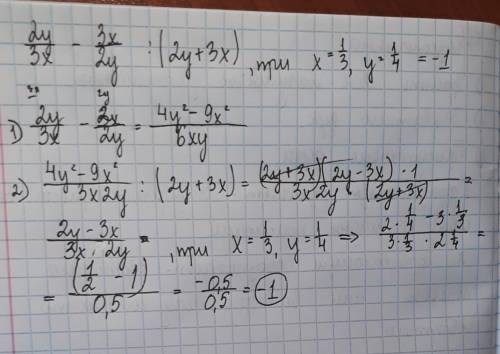 2y/3x - 3x/2y : (2y+3x), при x=1/3, y=1/4 = -1
1) 2y/3x - 3x/2y = (4y²-9x²)/6xy
2) (4y²-9x²)/(3x2y) : (2y+3x) = ((2y+3x)(2y-3x)·1)/(3x2y (2y+3x)) =
(2y-3x)/(3x·2y) = , при x=1/3, y=1/4 => (2·1/4-3·1/3)/(3·1/3·2 1/4) =
= (1/2-1)/0,5 = -0,5/0,5 = -1